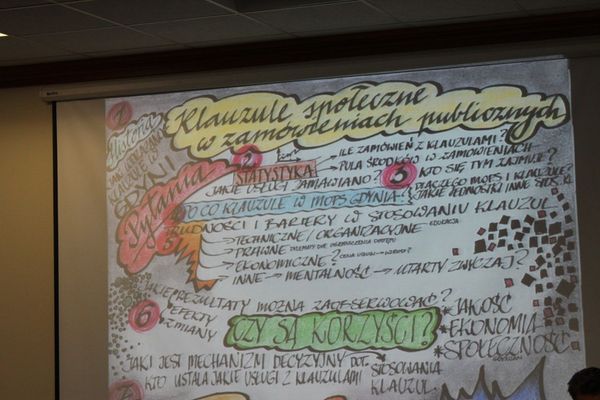 Klauzule społeczne
w zamówieniach publicznych
1
Historia
GDYNI
Pytania
2
STATYSTYKA
ILE ZAMÓWIEŃ Z KLAUZULAMI?
PULA ŚRODKÓW W ZAMÓWIENIACH
JAKIE USŁUGI ZAMAWIANO?
3
KTO SIĘ TYM ZAJMUJE?
PO CO KLAUZULE W MOPS GDYNIA?
DLACZEGO MOPS I KLAUZULE?
JAKIE JEDNOSTKI INNE STOS. KL
5
TRUDNOŚCI I BARIERY W STOSOWANIU KLAUZUL
TECHNICZNE/ORGANIZACYJNE
EDUKACJA
PRAWNE
EKONOMICZNE?
INNE → MENTALNOŚĆ → UTARTY ZWYCZAJ?
6
JAKIE REZULTATY MOŻNA ZAOBSERWOWAĆ?
EFEKTY
ZMIANY
CZY SĄ KORZYŚCI?
*JAKOŚĆ
*EKONOMIA
*SPOŁECZNOŚĆ
JAKI JEST MECHANIZM DECYZYJNY DOT.
STOSOWANIA
KLAUZUL
KTO USTALA JAKIE USŁUGI Z KLAUZULAMI